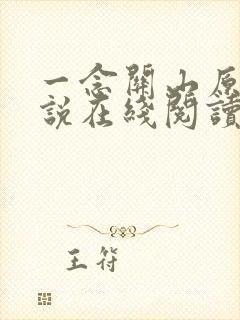 一念關山原
說在綫閱讀
王符